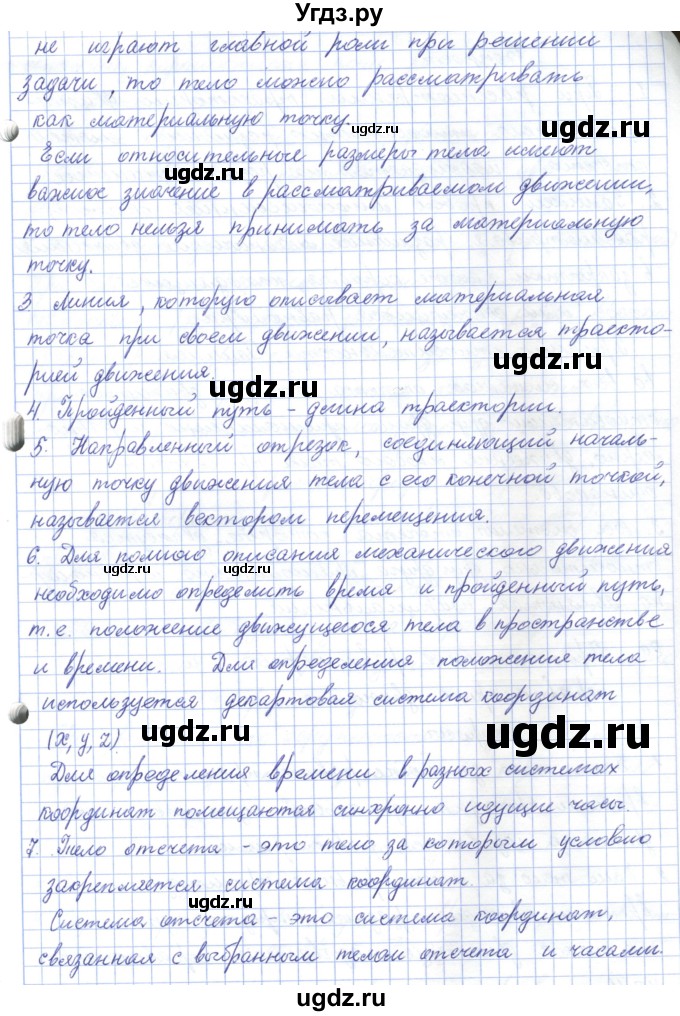 Угдз.ру
не играют главной роли при решении
задачи, то тело можно рассматривать
как материальную точку.
ugdz.ru
ugdz.ru
Если относительные размеры тела имеют
ugdz.ru
важное значение в рассматриваемом движении,
то тело нельзя принимать за материальную
точку.
3 Линия, которую описывает материальная
точка при своем движении, называется траекто-
ugdz.ru
рией движения.
ugdz.ru
4. Пройденный путь - длина траектории.
5. Направленный отрезок, соединяющий началь-
ную точку движения тела с его конечной точкой,
называется вектором перемещения.
6. Для полного описания механического движения
ugdz.ru
ugdz.ru
необходимо определить время и пройденный путь,
т.е. положение движущегося тела в пространстве
и времени. Для определения положения тела
ugdz.ru
используется декартовая система координат
(x, y, z)
ugdz.ru
ugdz.ru
Для определения времени в разных системах
координат помещаются синхронно идущие часы
7. Тело отсчета - это тело за которым условно
ugdz.ru
закрепляется система координат.
ugdz.ru
Система отсчета - это система координат,
связанная с выбранным телом отсчета и часами.
ugdz.ru